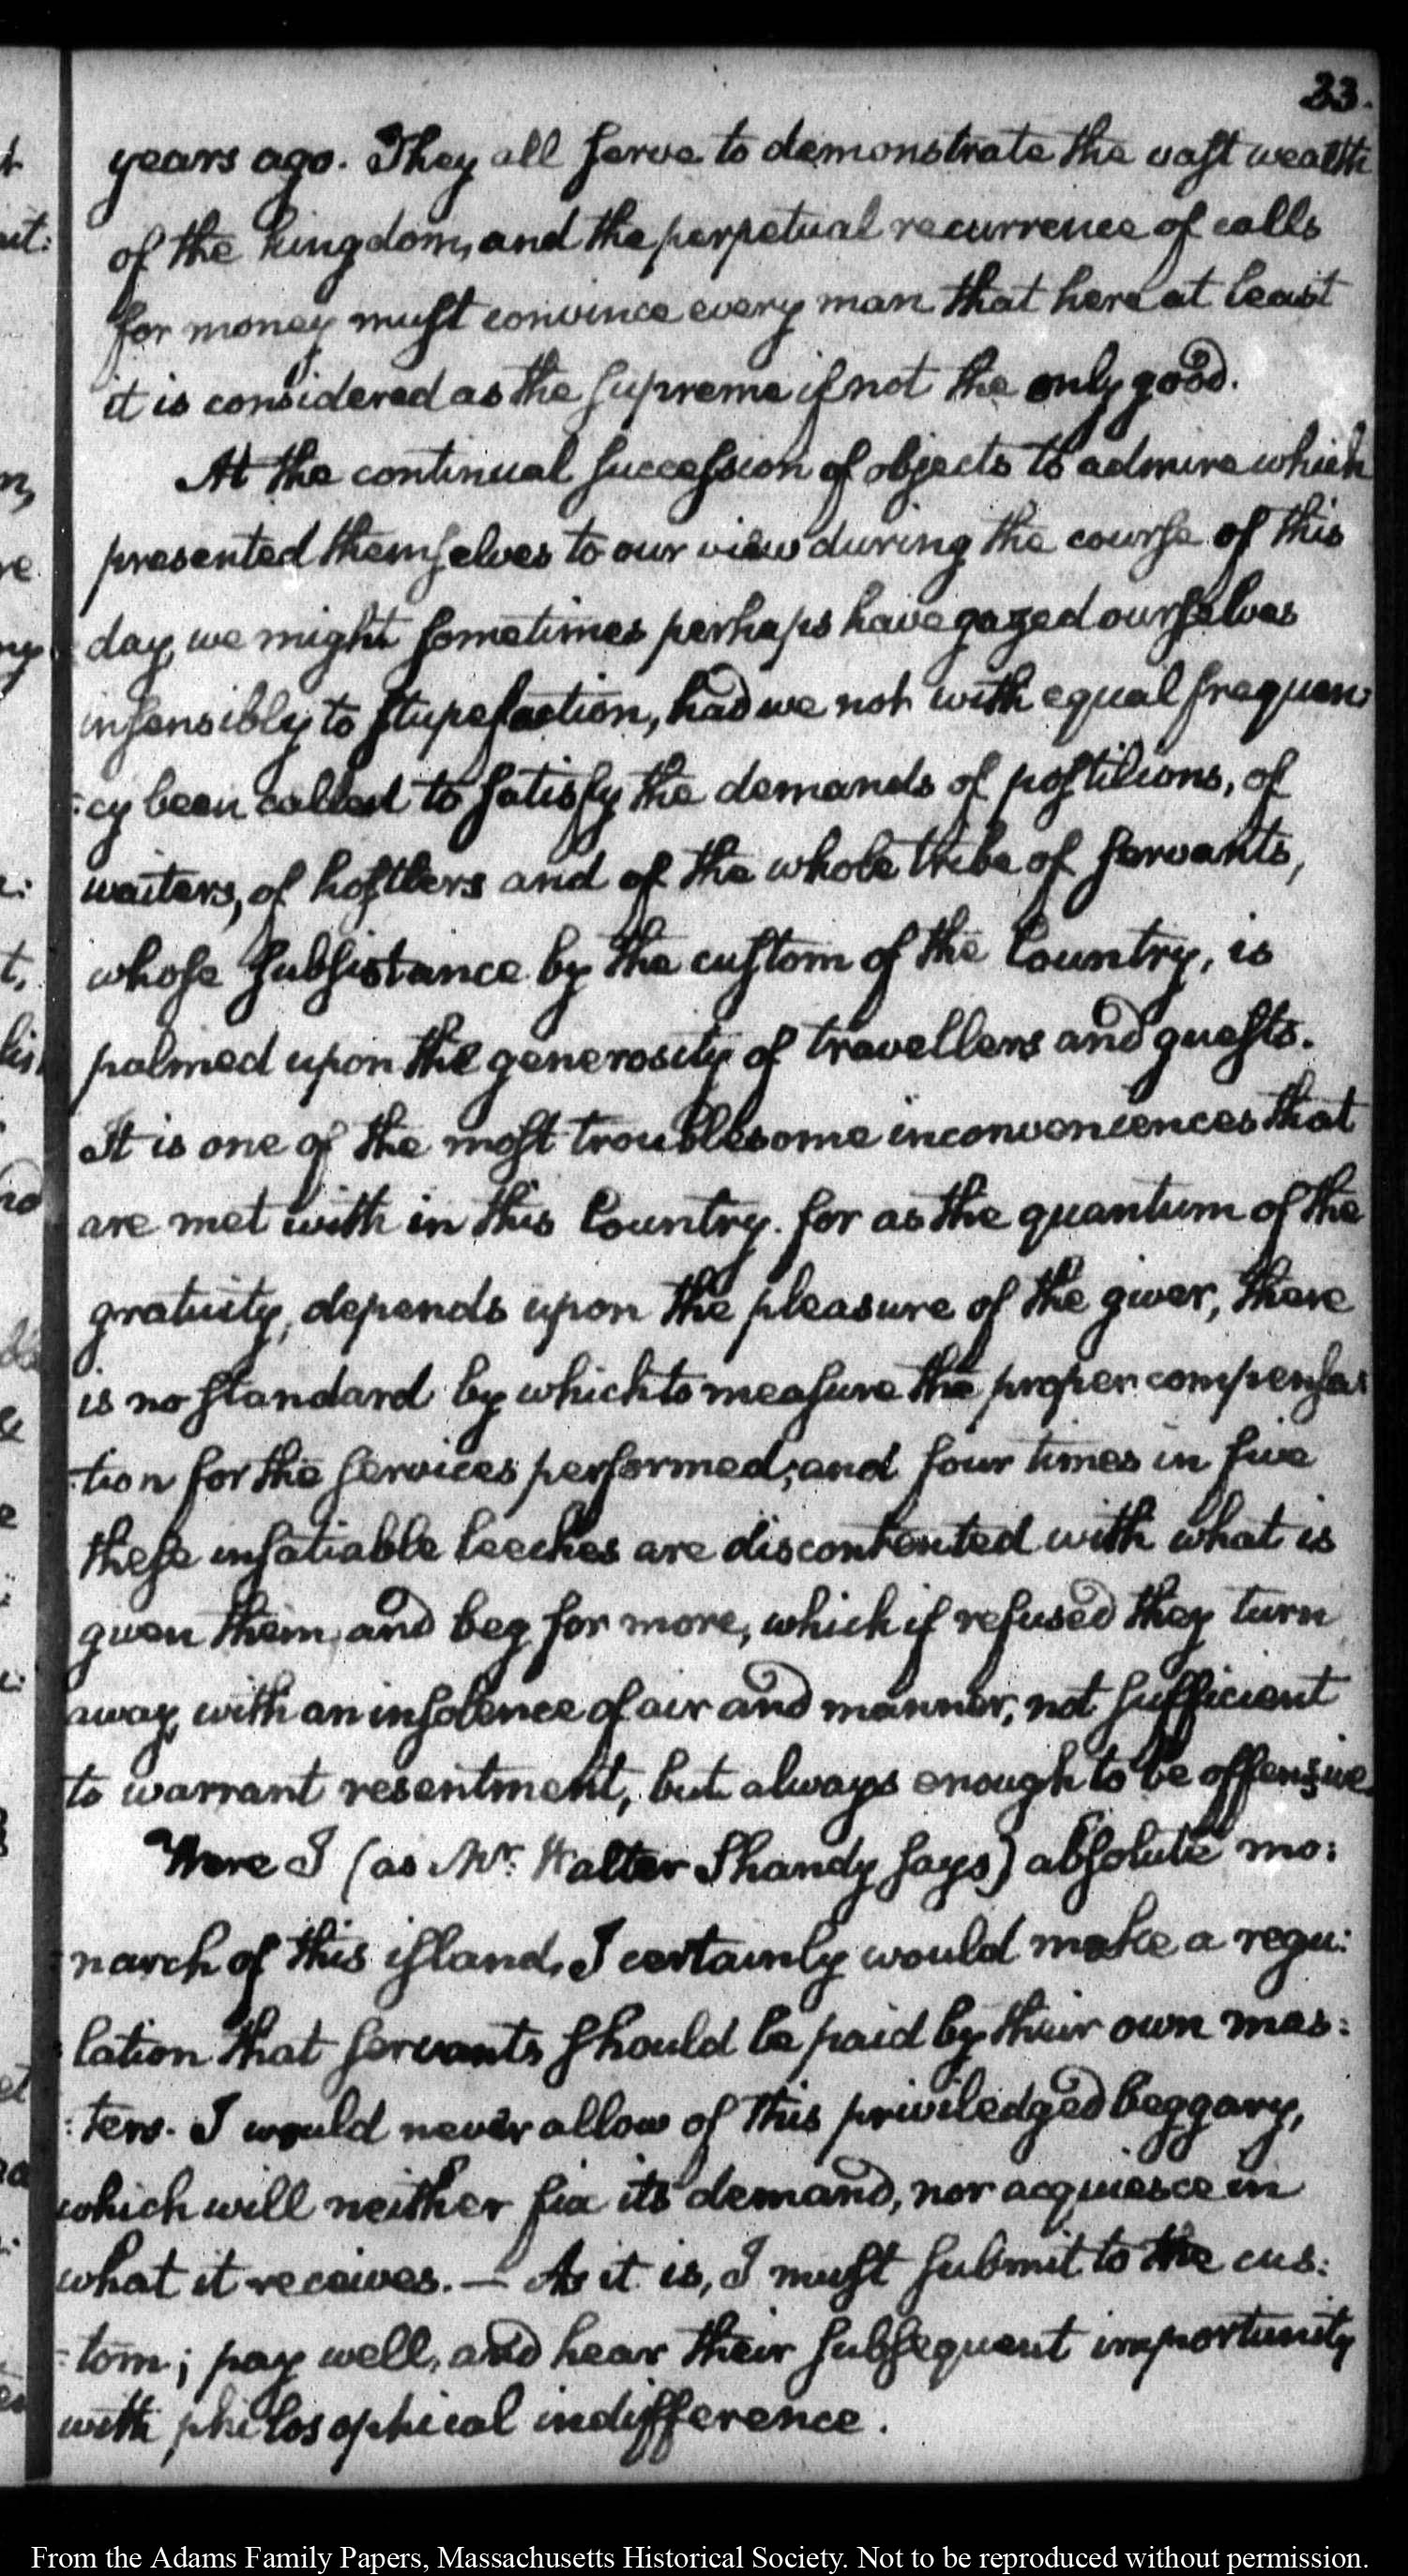 23.
years ago. They all serve to demonstrate the vast wealth
of the kingdom, and the perpetual recurrence of calls
for money must convince every man that here at least
it is considered as the supreme if not the only good.
At the continual succession of objects to admire which
presented themselves to our view during the course of this
day, we might sometimes perhaps have gazed ourselves
insensibly to stupefaction, had we not with equal frequen:
:cy been called to satisfy the demands of postilions, of
waiters, of hostlers and of the whole tribe of servants,
whose subsistance by the custom of the Country, is
palmed upon the generosity of travellers and guests.
It is one of the most troublesome inconveniences that
are met with in this Country. for as the quantum of the
gratuity, depends upon the pleasure of the giver, there
is no standard by which to measure the proper compensa:
:tion for the services performed; and four times in five
these insatiable leeches are discontented with what is
given them, and beg for more, which if refused they turn
away, with an insolence of air and manner, not sufficient
to warrant resentment, but always enough to be offensive.
Were I (as Mr. Walter Shandy says) absolute mo:
:narch of this island, I certainly would make a regu:
:lation that servants should be paid by their own mas:
:ters. I would never allow of this priviledged beggary,
which will neither fix its demand, nor acquiesce in
what it receives. — As it is, I must submit to the cus:
:tom; pay well, and hear their subsequent importunity
with philosophical indifference.
From the Adams Family Papers, Massachusetts Historical Society. Not to be reproduced without permission.